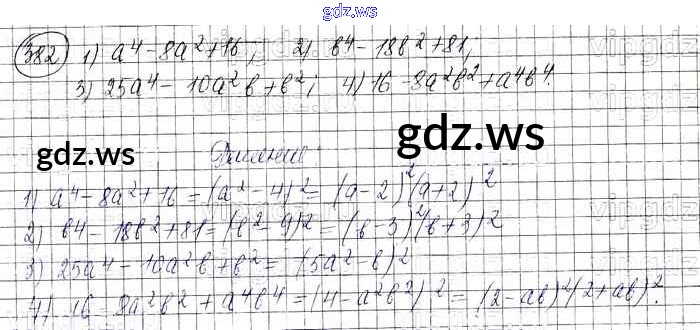 gdz.ws
382 1) a⁴ - 8a² + 16; 2) b⁴ - 18b² + 81;
3) 25a⁴ - 10a²b + b²; 4) 16 - 8a²b² + a⁴b⁴.
gdz.ws
gdz.ws
Решение:
1) a⁴ - 8a² + 16 = (a² - 4)² = (a - 2)²(a + 2)²
2) b⁴ - 18b² + 81 = (b² - 9)² = (b - 3)²(b + 3)²
3) 25a⁴ - 10a²b + b² = (5a² - b)²
4) 16 - 8a²b² + a⁴b⁴ = (4 - a²b²)² = (2 - ab)²(2 + ab)².
gdz.ws